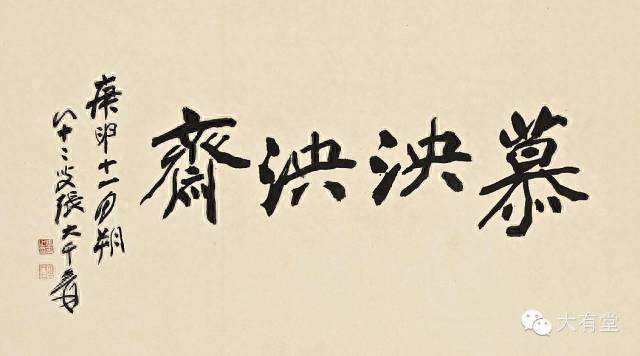 慕泱泱齋
庚申十一月朔
八十二叟張大千爰
大有堂